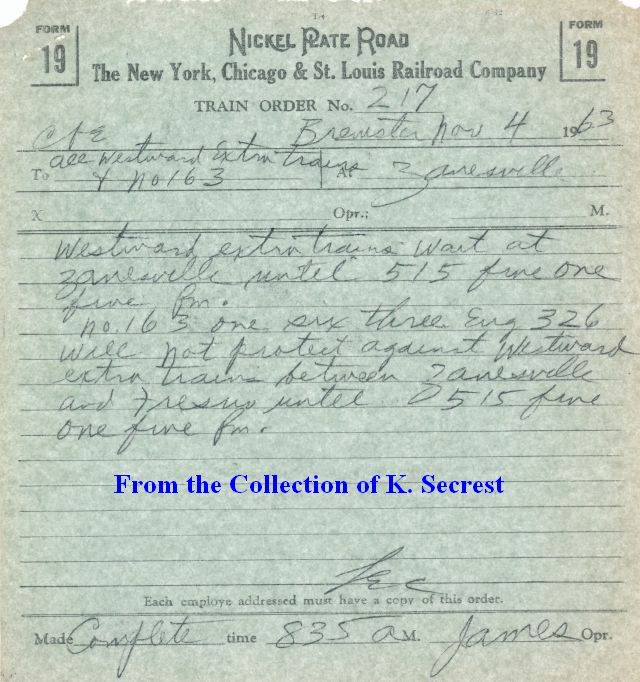 FORM 19
NICKEL PLATE ROAD
FORM 19
The New York, Chicago & St. Louis Railroad Company
TRAIN ORDER No. 217
Brewster Nov 4 1963
To all westward Extra trains At Zanesville
& no 163
X Opr.; M.
Westward extra trains wait at
Zanesville until 515 five one
five Pm.
no. 163 one six three Eng 326
will not protect against Westward
extra trains between Zanesville
and Fresno until 515 five
one five Pm.
From the Collection of K. Secrest
Each employe addressed must have a copy of this order.
Made Complete time 835 a M. James Opr.